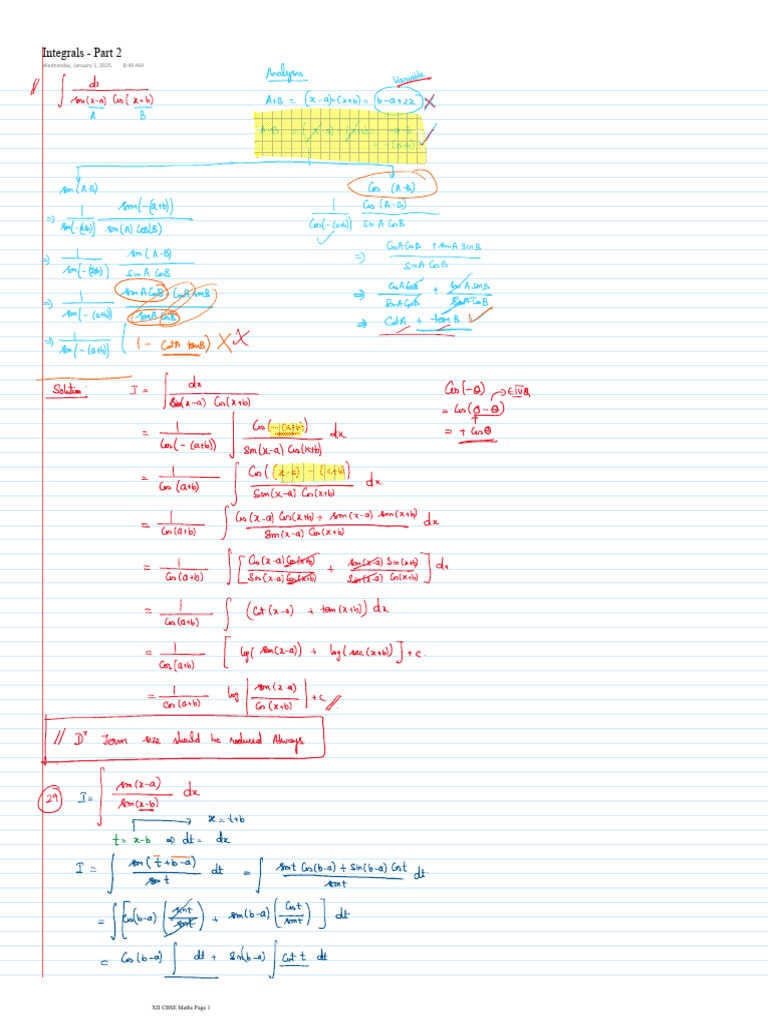 Integrals - Part 2
Wednesday, January 1, 2025 8:49 AM
// ∫ dx / (sin(x-a) Cos(x+b))
A B
Analysis
Variable
A+B = (x-a)+(x+b) = b-a+2x ×
A-B = (x-a) - (x+b) = -a-b
= -(a+b) ✓
sin (A-B)
Cos (A-B)
⇒ 1/sin(-(a+b)) sin(-(a+b)) / (sin(A) Cos(B))
1/Cos(-(a+b)) Cos (A-B) / (sin A Cos B)
⇒ 1/sin(-(a+b)) sin (A-B) / (sin A Cos B)
⇒ (Cos A Cos B + sin A sin B) / (sin A Cos B)
⇒ 1/sin(-(a+b)) (sin A Cos B - Cos A sin B) / (sin A Cos B)
⇒ Cos A Cos B / (sin A Cos B) + sin A sin B / (sin A Cos B)
⇒ 1/sin(-(a+b)) (1 - Cot A tan B) × ×
⇒ Cot A + tan B ✓
Solution: I = ∫ dx / (sin(x-a) Cos(x+b))
Cos(-θ) → ∈ IV Q
= Cos(0-θ)
= + Cosθ
= 1/Cos(-(a+b)) ∫ Cos(-(a+b)) / (sin(x-a) Cos(x+b)) dx
= 1/Cos(a+b) ∫ Cos((x-a) - (x+b)) / (sin(x-a) Cos(x+b)) dx
= 1/Cos(a+b) ∫ (Cos(x-a) Cos(x+b) + sin(x-a) sin(x+b)) / (sin(x-a) Cos(x+b)) dx
= 1/Cos(a+b) ∫ [Cos(x-a) Cos(x+b) / (sin(x-a) Cos(x+b)) + sin(x-a) sin(x+b) / (sin(x-a) Cos(x+b))] dx
= 1/Cos(a+b) ∫ (Cot(x-a) + tan(x+b)) dx
= 1/Cos(a+b) [log(sin(x-a)) + log(sec(x+b))] + c.
= 1/Cos(a+b) log |sin(x-a) / Cos(x+b)| + c //
// Dʳ Term size should be reduced Always
29 I = ∫ sin(x-a) / sin(x-b) dx
x = t+b
t = x-b ⇒ dt = dx
I = ∫ sin(t+b-a) / sin t dt = ∫ (sin t Cos(b-a) + sin(b-a) Cos t) / sin t dt
= ∫ [Cos(b-a) (sin t / sin t) + sin(b-a) (Cos t / sin t)] dt
= Cos(b-a) ∫ dt + sin(b-a) ∫ Cot t dt
XII CBSE Maths Page 1